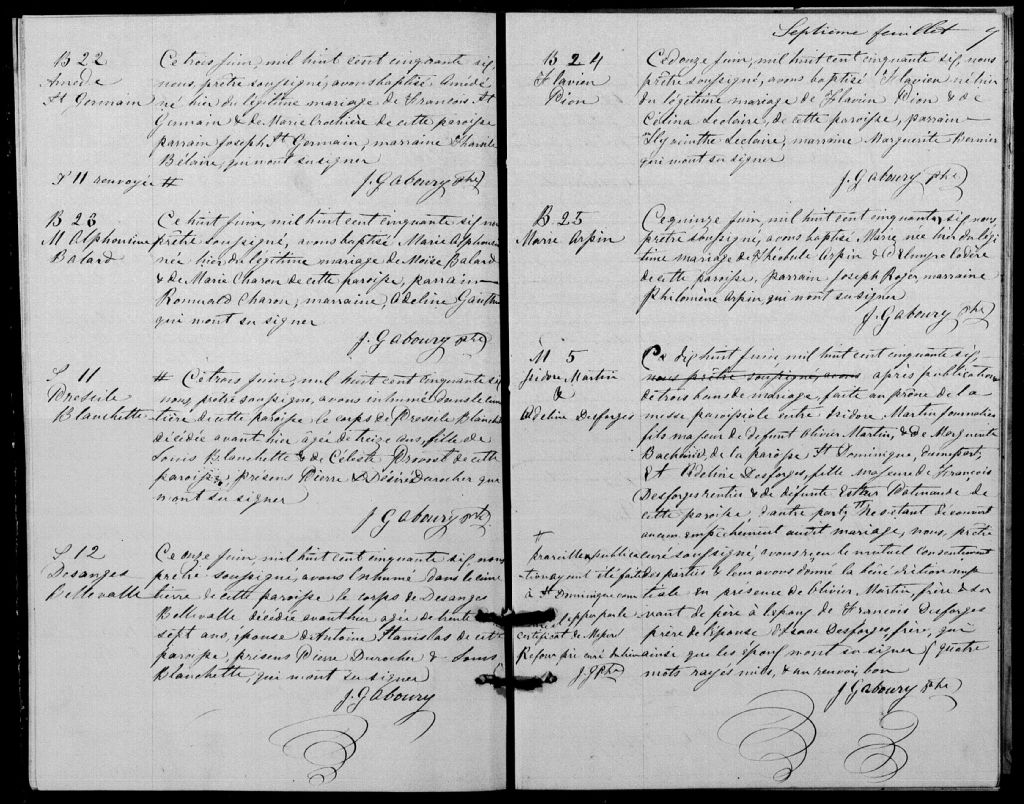 B 22
Amédé
St Germain
Ce trois juin, mil huit cent cinquante six,
nous, prêtre soussigné, avons baptisé Amédé
né hier du légitime mariage de Francois St
Germain & de Marie Crochière de cette paroisse
parrain Joseph St Germain, marraine
Bélaire, qui n'ont su signer
J. Gaboury ptre
S 11 renvoyée #
B 23
M Alphonsine
Balard
Ce huit juin, mil huit cent cinquante six, nous
prêtre soussigné, avons baptisé Marie Alphonsine
née hier du légitime mariage de Moïse Balard
& de Marie Charon de cette paroisse, parrain
Romuald Charon, marraine, Adeline
qui n'ont su signer
J. Gaboury ptre
S 11
Preseile
Blanchette
# Ce trois juin, mil huit cent cinquante six
nous, prêtre soussigné, avons inhumé dans le cime
tière de cette paroisse le corps de Preseile Blanchette
décédée avant hier âgée de treize ans, fille de
Louis Blanchette & de Céleste Prévost de cette
paroisse, présens Pierre & Désiré Durocher qui
n'ont su signer
J. Gaboury ptre
S 12
Desanges
Bellevalle
Ce onze juin, mil huit cent cinquante six, nous
prêtre soussigné, avons inhumé dans le cime
tière de cette paroisse le corps de Desanges
Bellevalle décédée avant hier agée de trente
sept ans, épouse de Antoine Stanislas de cette
paroisse, présens Pierre Durocher & Louis
Blanchette, qui n'ont su signer
J. Gaboury
Septième feuillet 7
B 24
Flavien
Dion
Ce douze juin, mil huit cent cinquante six, nous
prêtre soussigné, avons baptisé Flavien né hier
du légitime mariage de Flavien Dion & de
Célina Leclaire, de cette paroisse, parrain
Hyacinthe Leclaire, marraine Marguerite Bernier
qui n'ont su signer
J. Gaboury ptre
B 25
Marie Arpin
Ce quinze juin, mil huit cent cinquante six, nous
prêtre soussigné, avons baptisé Marie née hier du légi
time mariage de Théodule Arpin &
de cette paroisse, parrain Joseph Roger, marraine
Philomène Arpin, qui n'ont su signer
J. Gaboury ptre
M 5
Isidore Martin
&
Adeline Desforges
Ce dix huit juin mil huit cent cinquante six,
nous prêtre soussigné, avons après publication
de trois bans de mariage, faite au prône de la
messe paroissiale entre Isidore Martin journalier
fils majeur de defunt Olivier Martin, & de Marguerite
Bachand, de la paroisse St Dominique, d'une part,
Et Adeline Desforges, fille majeure de François
Desforges rentier & de défunte Esther de
cette paroisse, d'autre part, # Ne s'étant découvert
aucun empêchement au dit mariage, nous, prêtre
curé soussigné, avons reçu le mutuel consentement
des parties & leur avons donné la bénédiction nup
tiale en présence de Olivier Martin, frère & ser
vant de père à l'époux, de François Desforges
père de l'épouse & Isaac Desforges, frère, qui
ainsi que les époux n'ont su signer / quatre
mots rayés nuls, & un renvoi bon
J Gaboury ptre
#
pareilles publica
tions ayant été faites
à St Dominique com
me il appert par le
certificat de Mr
Refour ptre curé du lieu
J. G ptre